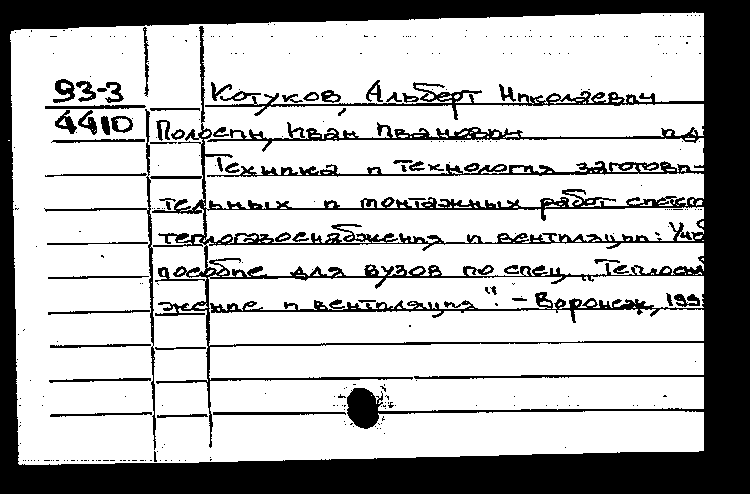 93-3 Котуков, Альберт Николаевич
4410 Полосин, Иван Иванович
Техника и технология заготови-
тельных и монтажных работ систем
теплогазоснабжения и вентиляции: Учеб
пособие для вузов по спец. „Теплоснаб
жение и вентиляция". - Воронеж,